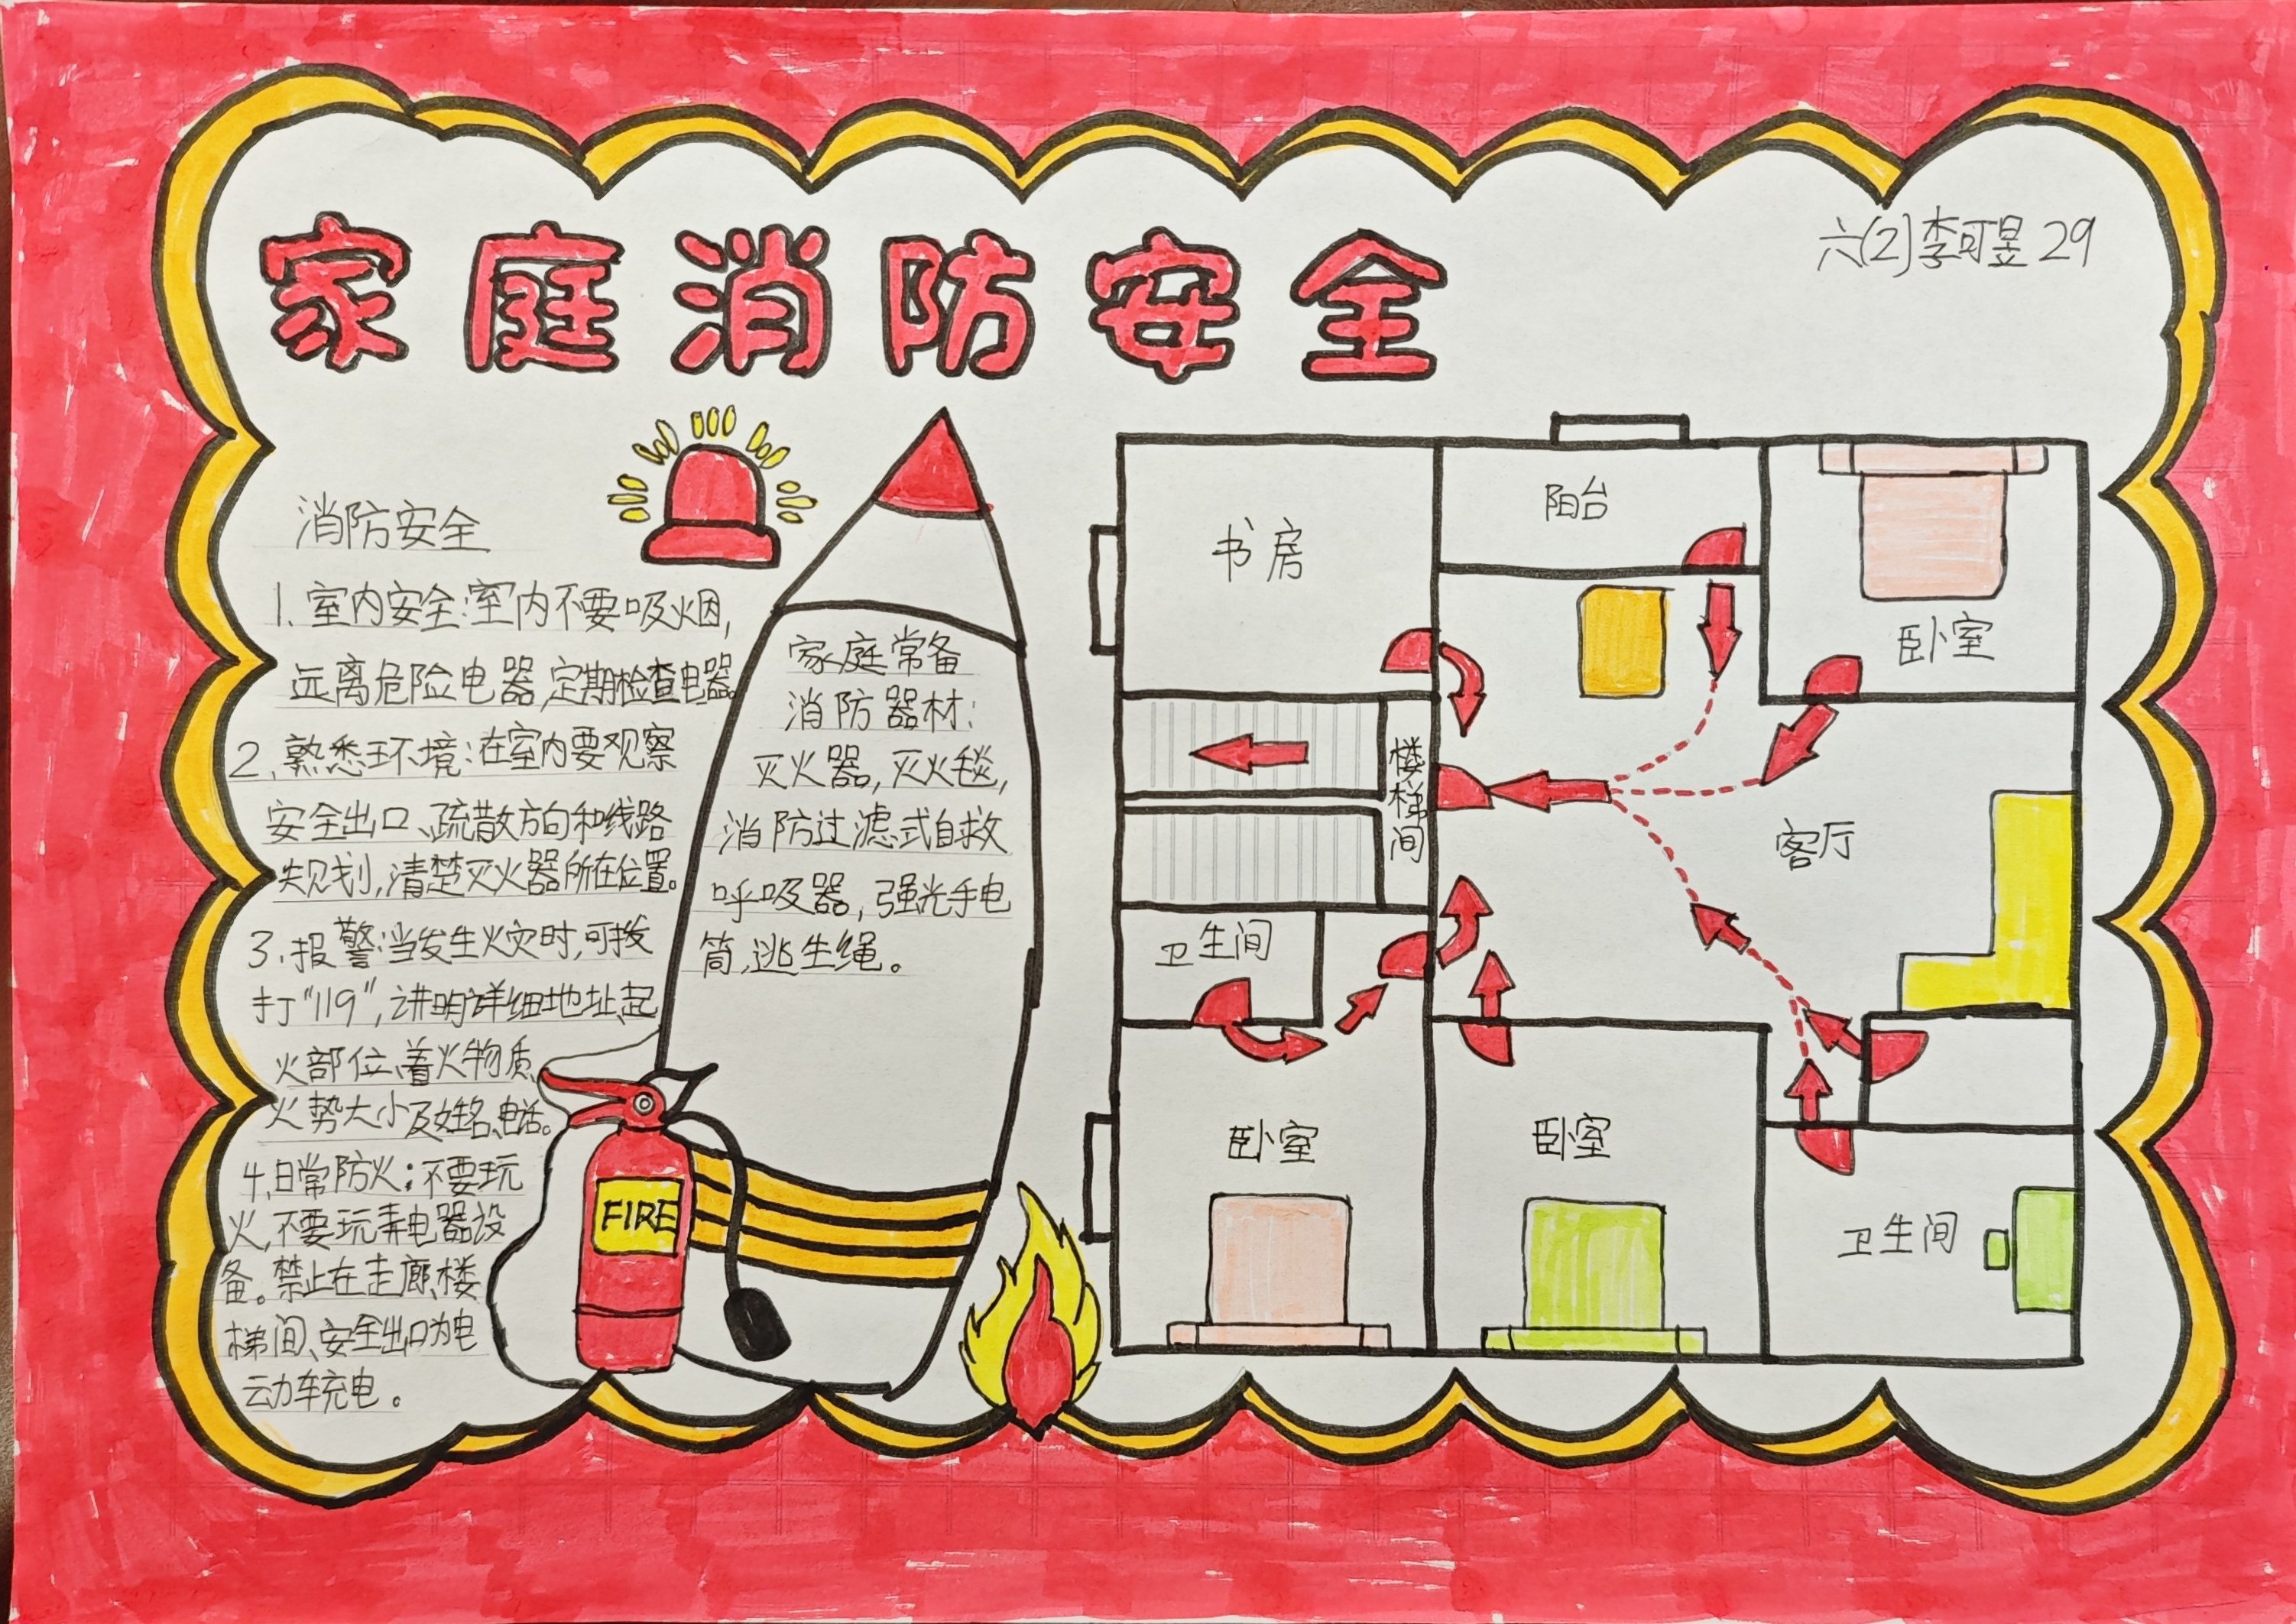 家庭消防安全
六(2)李可昱 29
消防安全
1. 室内安全:室内不要吸烟,
远离危险电器,定期检查电器。
2. 熟悉环境:在室内要观察
安全出口、疏散方向和线路
规划,清楚灭火器所在位置。
3. 报警:当发生火灾时,可拨
打"119",讲明详细地址、起
火部位、着火物质、
火势大小及姓名、电话。
4. 日常防火:不要玩
火,不要玩弄电器设
备。禁止在走廊、楼
梯间、安全出口为电
动车充电。
家庭常备
消防器材:
灭火器,灭火毯,
消防过滤式自救
呼吸器,强光手电
筒,逃生绳。
FIRE
书房
阳台
卧室
楼梯间
客厅
卫生间
卧室
卧室
卫生间